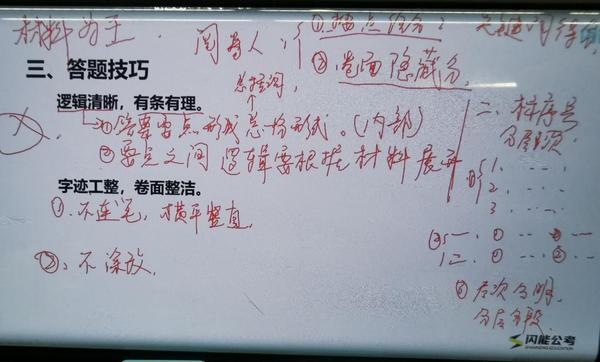 材料为王 阅卷人：① 按点给分：关键词得分
② 卷面隐藏分
三、答题技巧
总括词
逻辑清晰，有条有理。
① 答案要点形成总分形式。（内部）
② 要点之间逻辑要根据材料展开
二、标序号
分层次
1、
2、
3、
字迹工整，卷面整洁。
①、不连笔，横平竖直
②、不涂改，
③ 层次分明，
分层分段
闪能公考
SHANNENG EDUCATION